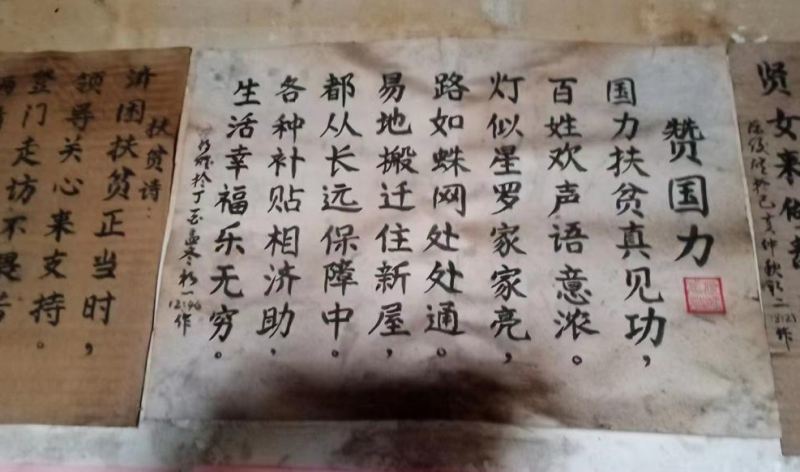 贤女来
赞国力
国力扶贫真见功，
百姓欢声语意浓。
灯似星罗家家亮，
路如蛛网处处通。
易地搬迁住新屋，
都从长远保障中。
各种补贴相济助，
生活幸福乐无穷。
12:46作
扶贫诗：
济困扶贫正当时，
领导关心来支持。
登门走访不畏